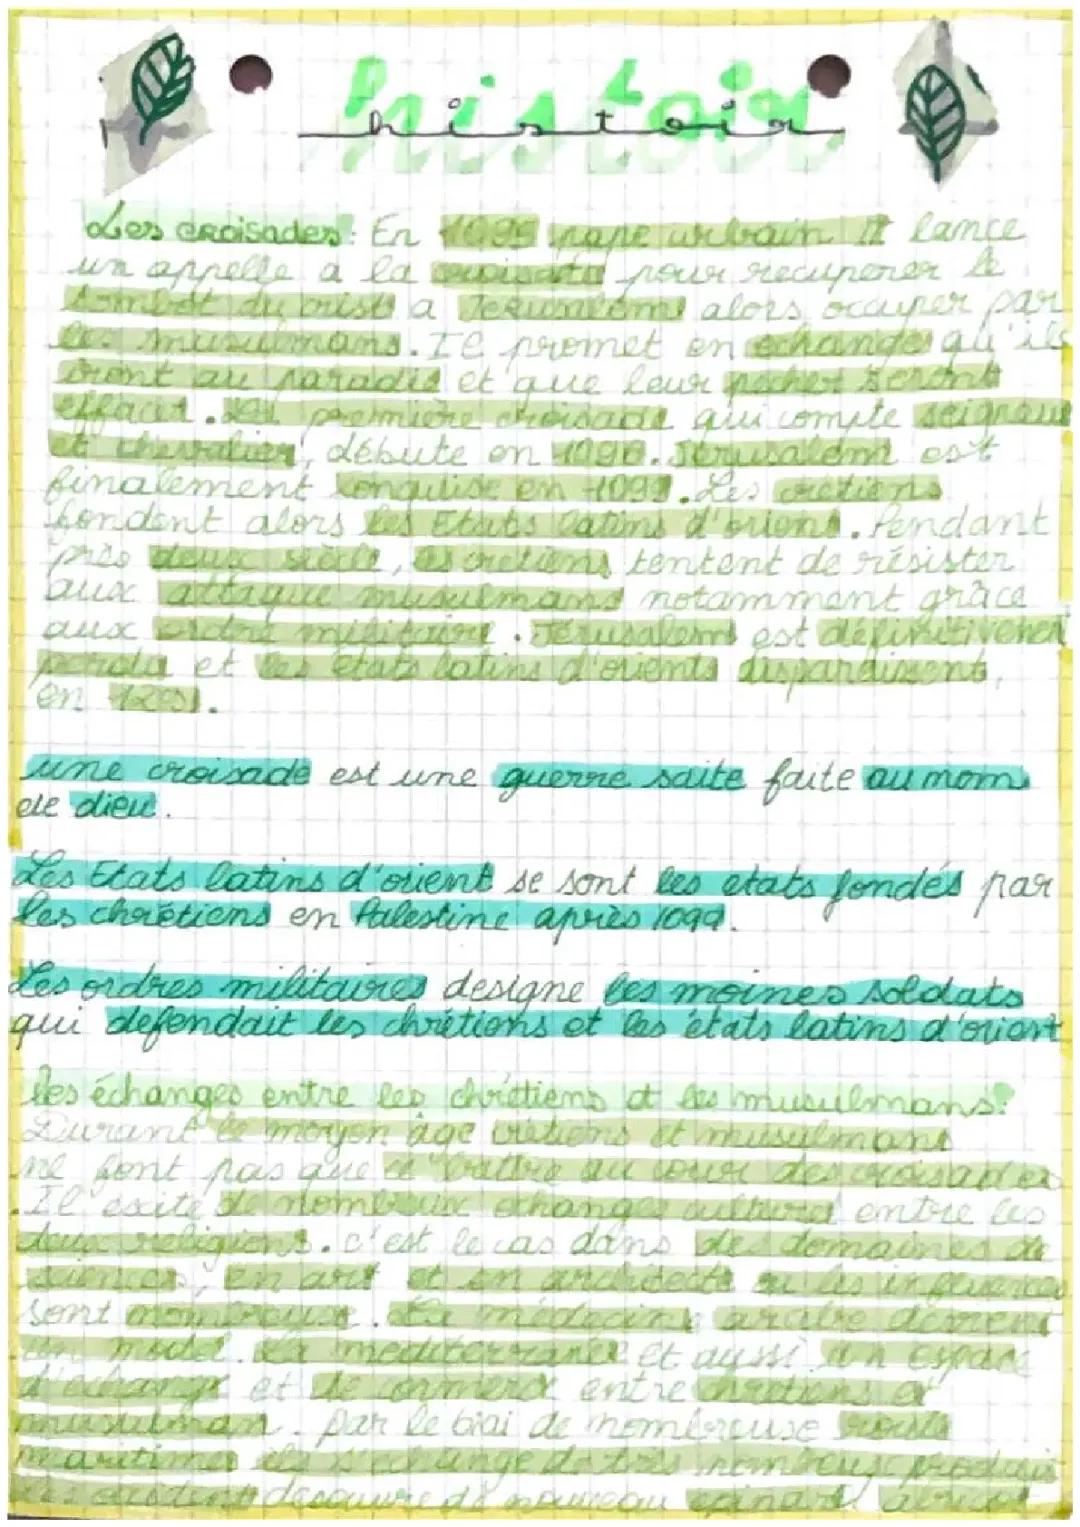 histoir
Les croisades: En pape urbain II lance
un appelle a la pour recuperer le
a Jerusalem alors occuper par
les musulmans. Il promet en echange qu'ils
iront au paradis et que leur pecher seront
effacer. La première croisade qui compte seigneur
et chevalier, débute en Jerusalem est
finalement conquise en 1099. Les cretiens
fondent alors les Etats latins d'orient. Pendant
près deux siècle, les cretiens tentent de résister
aux attaque musulmans notamment grâce
aux ordre militaire. Jerusalem est définitivement
perdu et les états latins d'orients disparaissent,
en
une croisade est une guerre saite faite au nom
de dieu.
Les Etats latins d'orient se sont les etats fondés par
les chrétiens en Palestine après 1099.
Les ordres militaires designe les moines soldats
qui defendait les chrétiens et les états latins d'orient
les échanges entre les chrétiens et les musulmans:
Durant le moyen âge cretiens et musulmans
ne font pas que ce battre au cour des croisades
Il excite de nombreux echanges culturel entre les
deux religions. c'est le cas dans des domaines de
sciences, en art et en architecte ou les influences
sont nombreuse. La médecine arabe devient
un model. La mediterranée et aussi un espace
d'echange et de entre chretiens et
musulman. par le biai de nombreuse
maritimes ils s'echange de très nombreux produits
decouvre de nouveau epinard, abricot